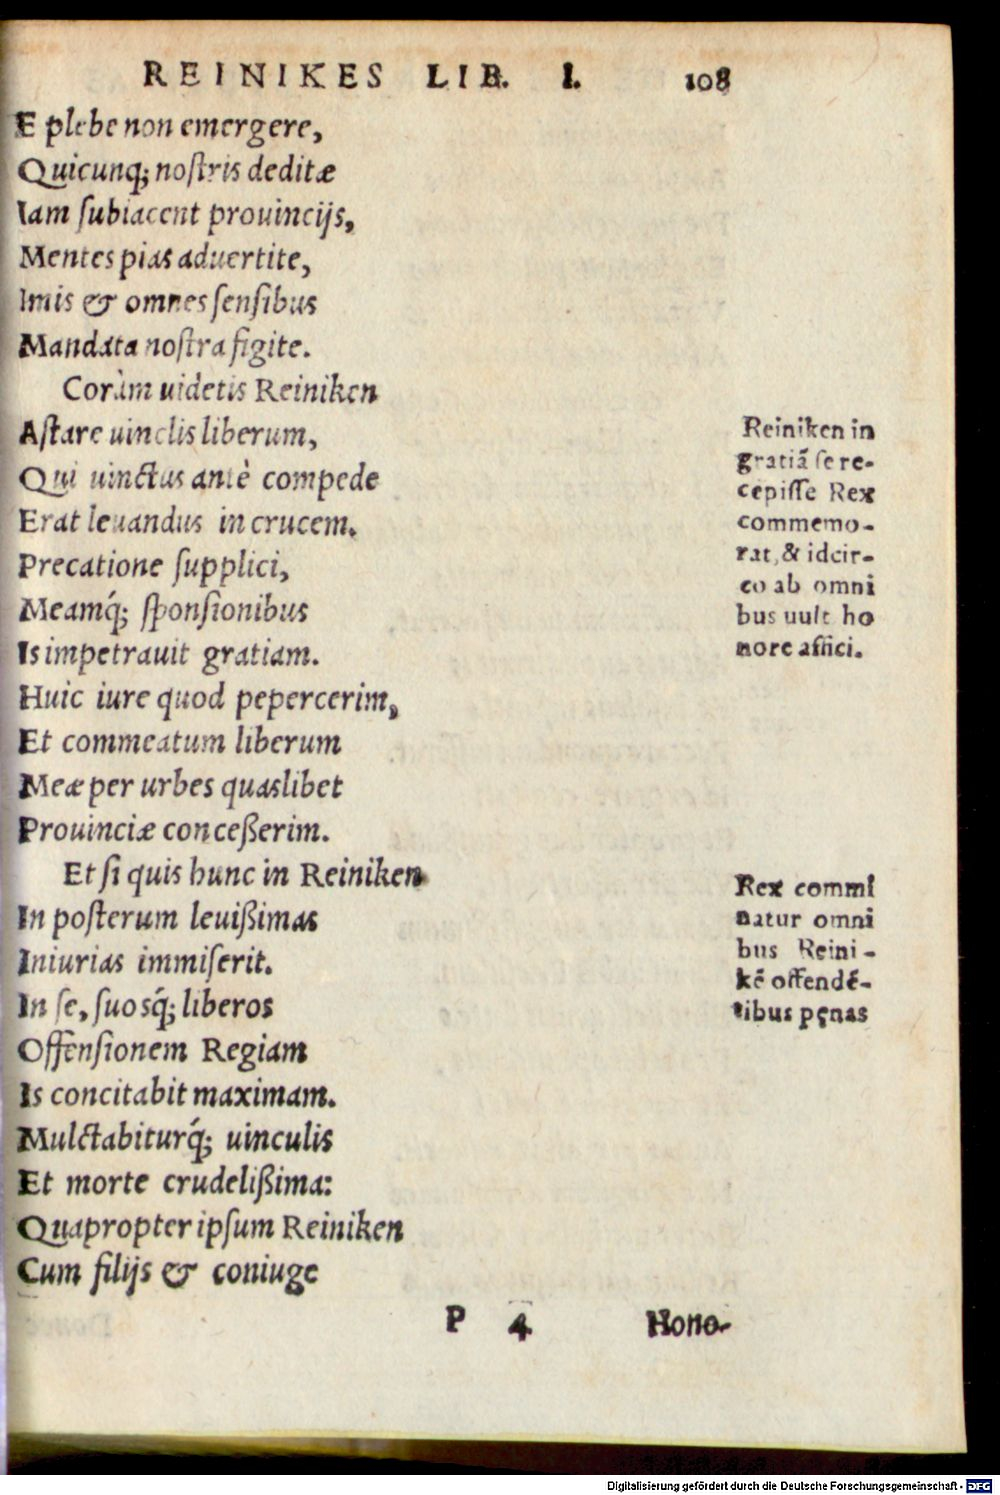 REINIKES LIB. I. 108
E plebe non emergere,
Quicunq; nostris deditæ
Iam subiacent prouincijs,
Mentes pias aduertite,
Imis & omnes sensibus
Mandata nostra figite.
Coràm uidetis Reiniken
Astare uinclis liberum,
Qui uinctus antè compede
Erat leuandus in crucem.
Precatione supplici,
Meamq́; sponsionibus
Is impetrauit gratiam.
Huic iure quod pepercerim,
Et commeatum liberum
Meæ per urbes quaslibet
Prouinciæ conceßerim.
Et si quis hunc in Reiniken
In posterum leuißimas
Iniurias immiserit.
In se, suosq́; liberos
Offensionem Regiam
Is concitabit maximam.
Mulctabiturq́; uinculis
Et morte crudelißima:
Quapropter ipsum Reiniken
Cum filijs & coniuge
P 4 Hono-
Reiniken in
gratiã se re-
cepisse Rex
commemo-
rat, & idcir-
co ab omni
bus uult ho
nore affici.
Rex commi
natur omni
bus Reini-
kẽ offendẽ-
tibus pęnas
Digitalisierung gefördert durch die Deutsche Forschungsgemeinschaft - DFG